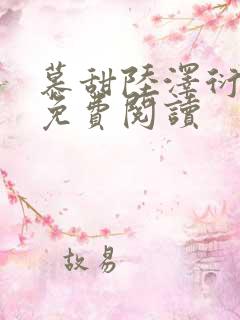 慕甜陸澤衍
免費閱讀
故易